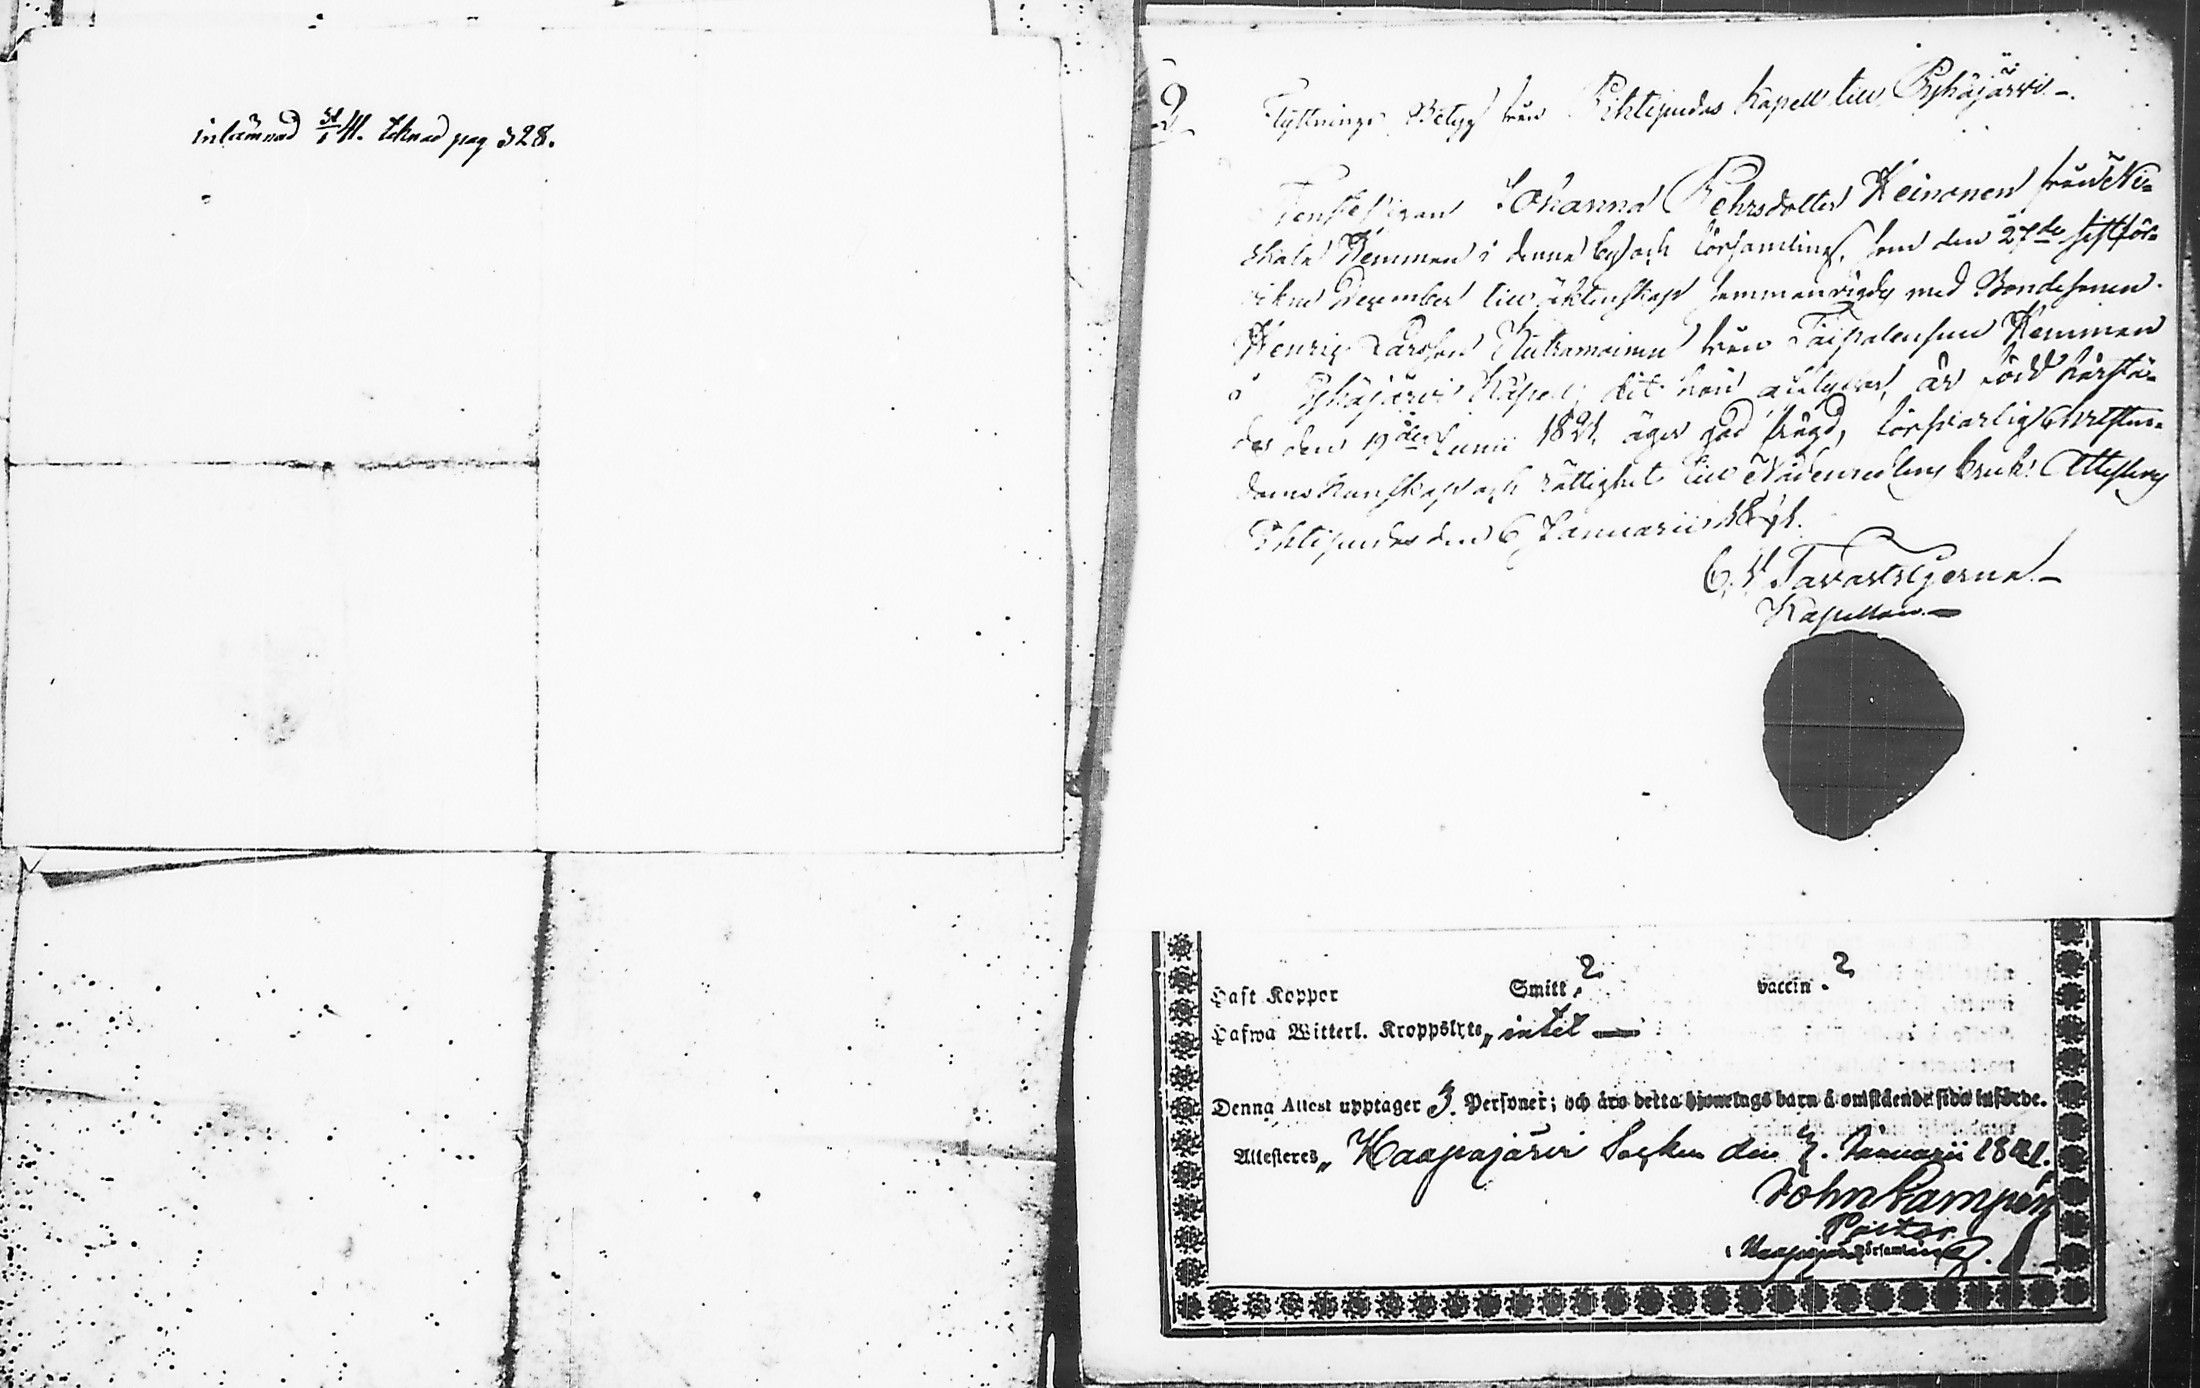 inlämnad 31/1 41. teknad pag 328.
2
Flyttnings Betyg från Pihtipudas Kapell till Pyhäjärvi.
Tjenstepigan Johanna Pehrsdotter Heinonen från Ni-
skala Hemman i denna by och församling, som den 27de sistför-
vikne December till äktenskap sammanvigdes med Bondesonen
Henric Larsson Kukamoinen från Taipalensuu Hemman
i Pyhäjärvi Kapell, dit hon utflyttar, är född härstä-
des den 19de Junii 1821, äger god frägd, försvarlig Christen-
doms kunskap och rättighet till Nådemedlens bruk. Attesteras
Pihtipudas den 6 Januarii 1841.
C. A. Tavaststjerna.
Kapellan.
Haft Koppor Smitt. 2 vaccin. 2
Hafwa Witterl. Kroppslyte, intet —
Denna Attest upptager 3. Personer; och äro detta hjonelags barn å omstående sida införde.
Attesteres, Haapajärvi Socken den 7. Januarii 1841.
John Lampén
Pastor
i Haapajärvi Församling.